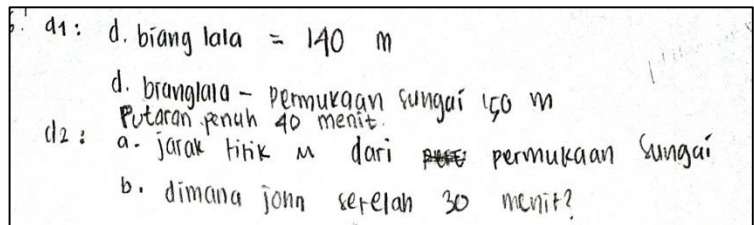 d1 : d. biang lala = 140 m
d. branglala - permukaan sungai 150 m
Putaran penuh 40 menit.
d2 : a. jarak titik M dari permukaan sungai
b. dimana john setelah 30 menit?